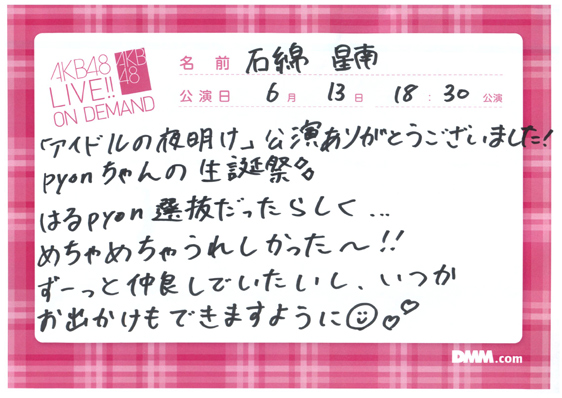 AKB48
LIVE!!
ON DEMAND
AKB
48
名前 石綿 星南
公演日 6月 13日 18:30 公演
「アイドルの夜明け」公演ありがとうございました!
pyonちゃんの生誕祭
はるpyon選抜だったらしく...
めちゃめちゃうれしかった〜!!
ずーっと仲良しでいたいし、いつか
お出かけもできますように
DMM.com